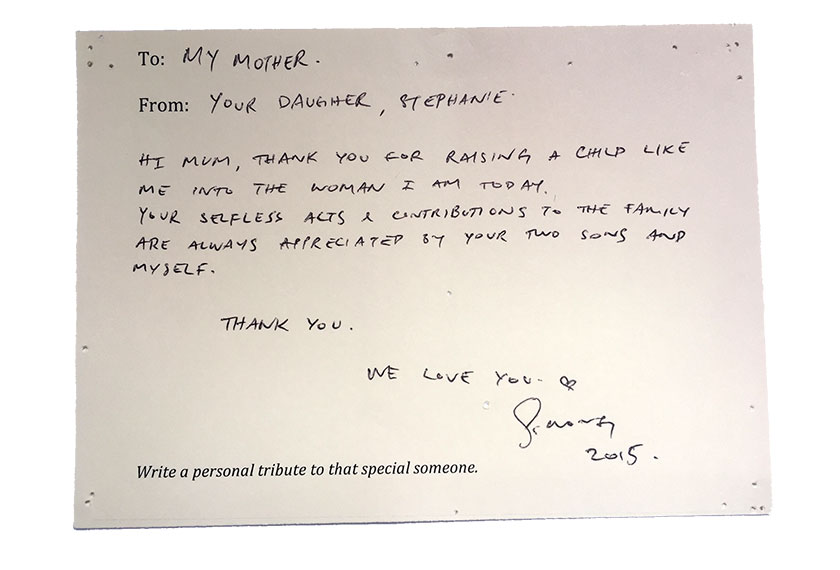 To: MY MOTHER.
From: YOUR DAUGHER, STEPHANIE
HI MUM, THANK YOU FOR RAISING A CHILD LIKE
ME INTO THE WOMAN I AM TODAY.
YOUR SELFLESS ACTS & CONTRIBUTIONS TO THE FAMILY
ARE ALWAYS APPRECIATED BY YOUR TWO SONS AND
MYSELF.
THANK YOU.
WE LOVE YOU.
2015.
Write a personal tribute to that special someone.